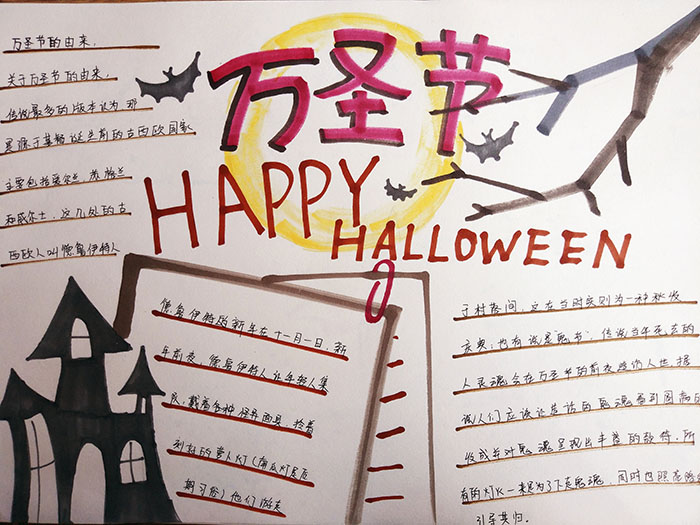 万圣节
HAPPY
HALLOWEEN
万圣节的由来.
关于万圣节的由来,
传说最多的版本认为 那
是源于基督诞生前的古西欧国家
主要包括爱尔兰 苏格兰
和威尔士. 这几处的古
西欧人叫德鲁伊特人
德鲁伊特的新年在十一月一日, 新
年前夜. 德鲁伊特人让年轻人集
队, 戴着各种怪异面具, 拎着
刻好的萝卜灯(南瓜灯系后
期习俗)他们游走
于村落间. 这在当时实则为一种秋收
庆典; 也有说是鬼节, 传说当年死去的
人灵魂会在万圣节的前夜造访人世, 据
说人们应该让造访的鬼魂看到圆满的
收成并对鬼魂呈现出丰盛的款待. 所
有的灯火一来为了下走鬼魂, 同时也照亮
引导其归.